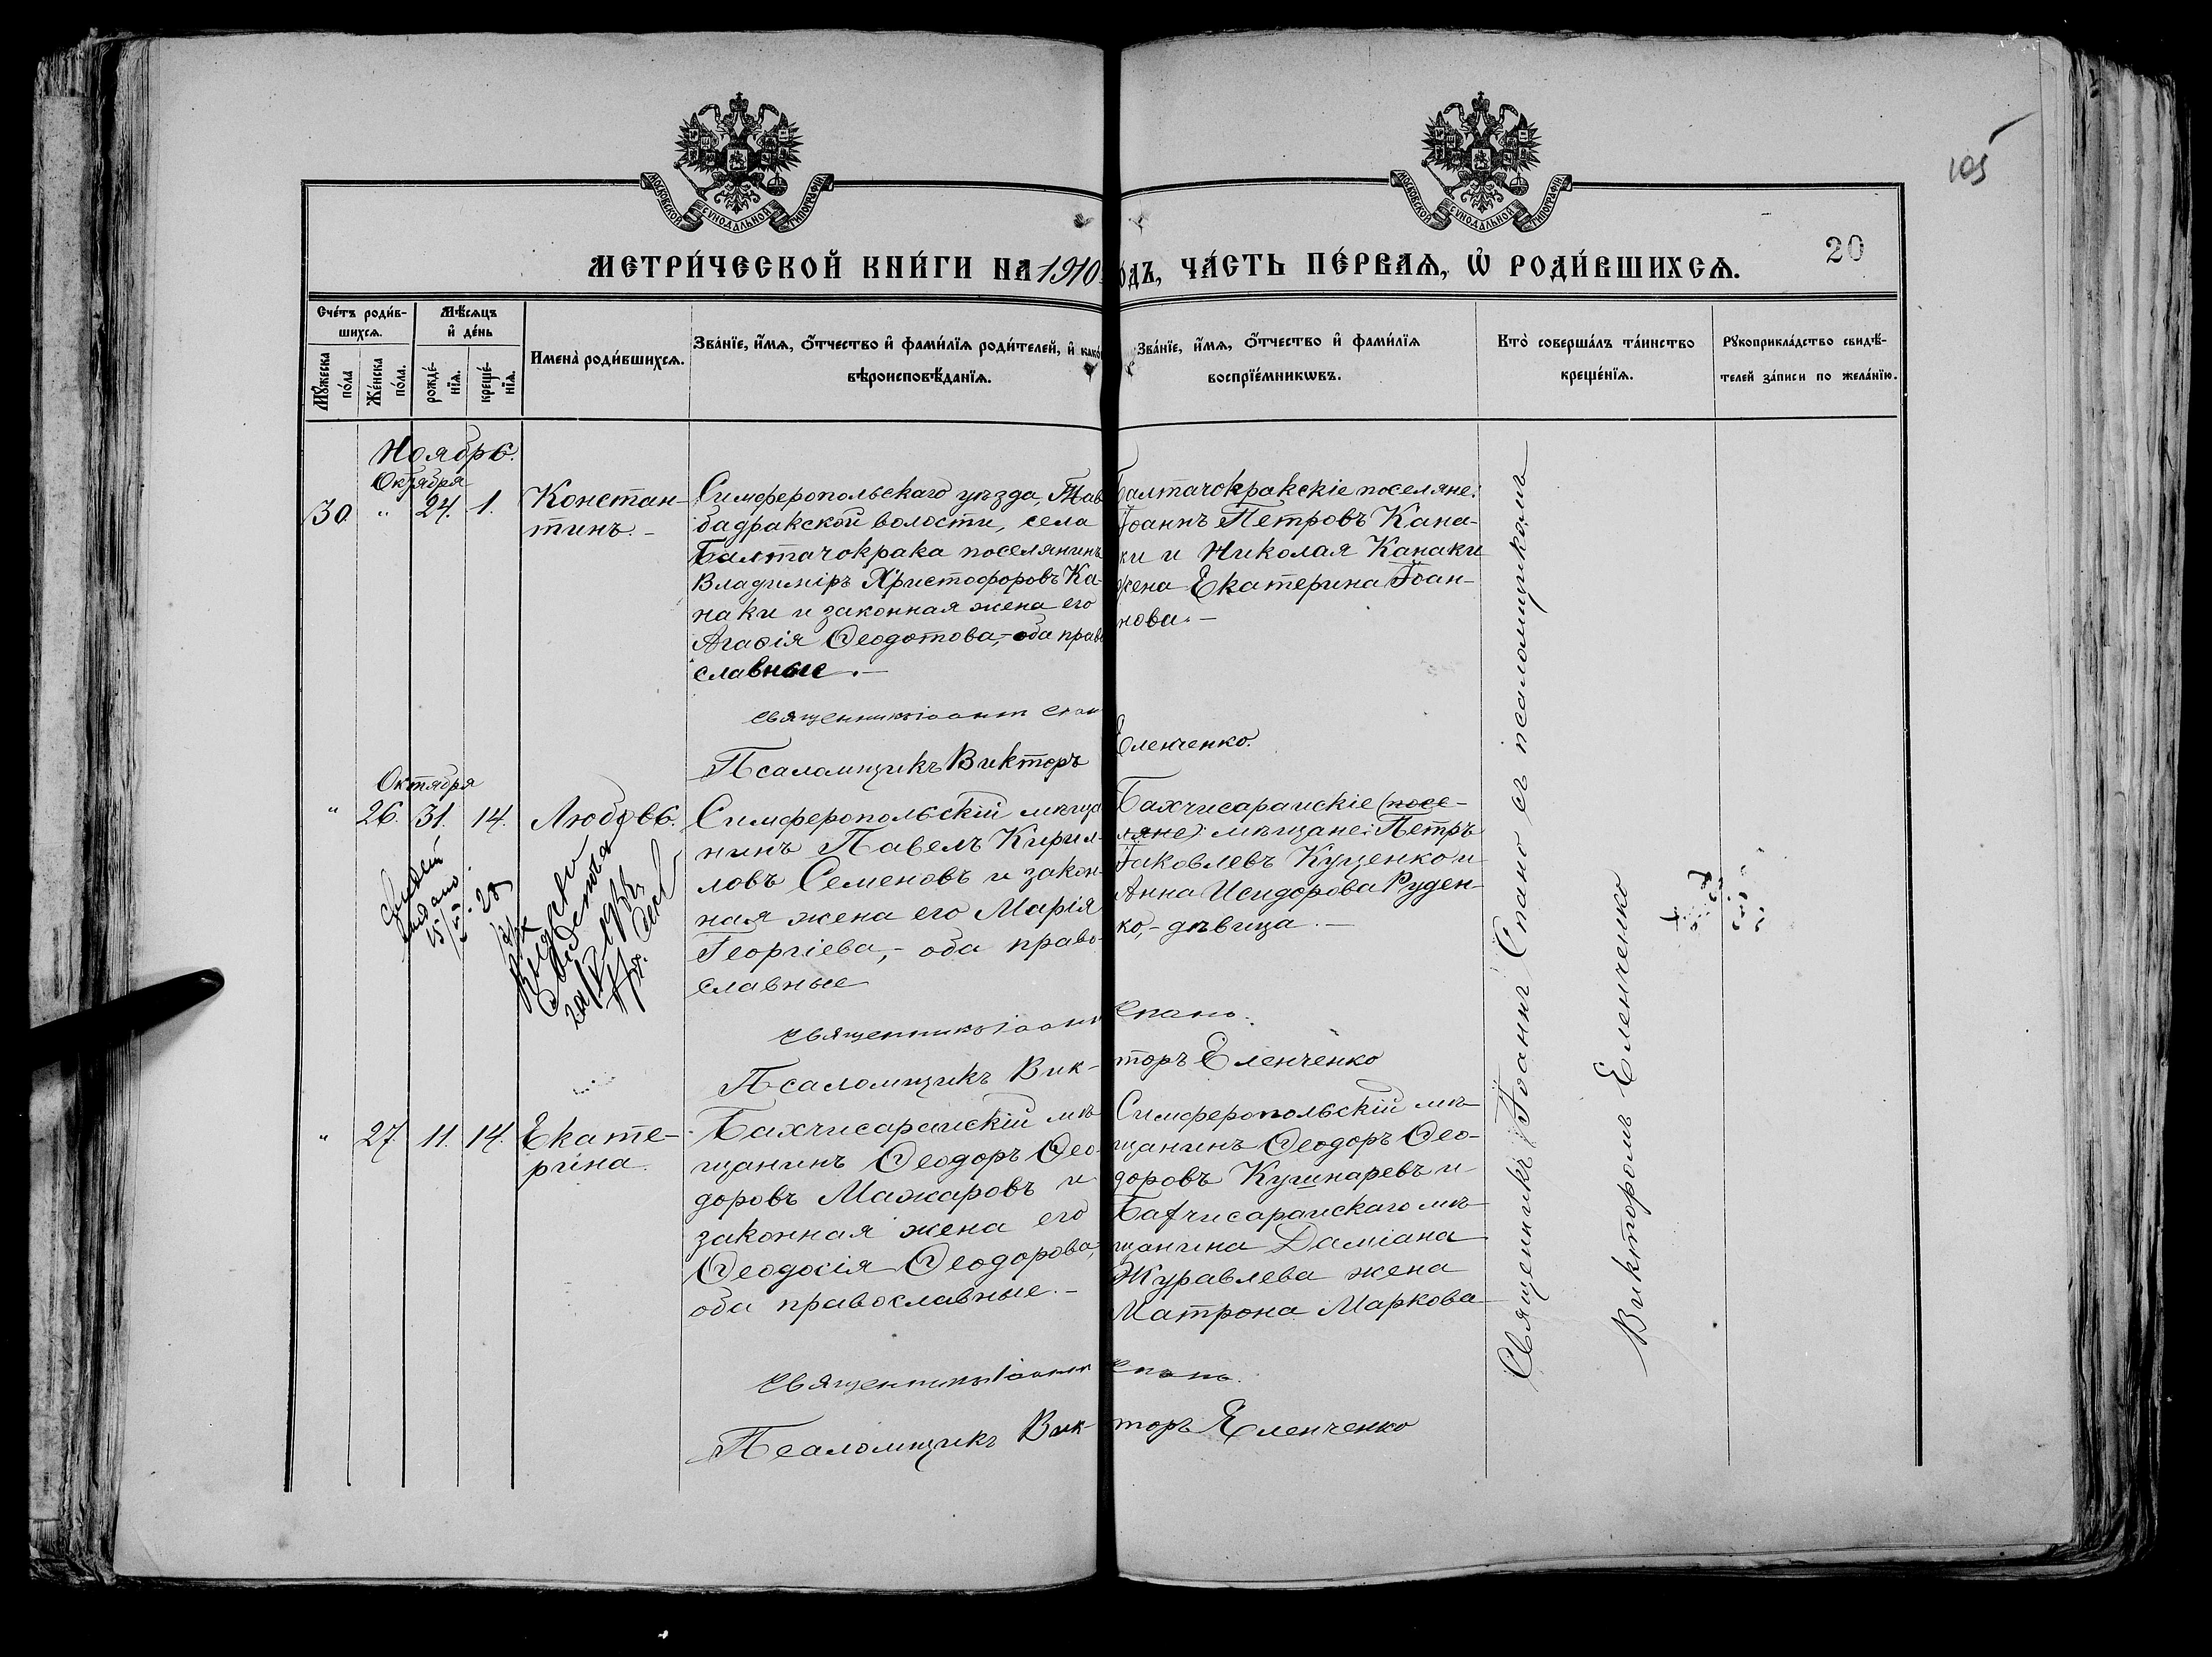 105
МОСКОВСКОЙ СѴНОДАЛЬНОЙ ТИПОГРАФІИ
МОСКОВСКОЙ СѴНОДАЛЬНОЙ ТИПОГРАФІИ
20
МЕТРИ́ЧЕСКОЙ КНИ́ГИ НА 1910 ОДЪ, ЧА́СТЬ ПЕ́РВАЯ, Ѡ҆ РОДИ́ВШИХСЯ.
Сче́тъ роди́в-
шихсѧ.
Мꙋ́жеска по́ла
Же́нска по́ла.
Мѣ́сѧцъ
и҆ де́нь
рожде́-
нїѧ.
креще́-
нїѧ.
Имена̀ роди́вшихсѧ.
Зва́нїе, и҆́мѧ, ѻ҆́тчество и҆ фами́лїѧ роди́телей, и҆ како́
вѣроисповѣ́данїѧ.
Зва́нїе, и҆́мѧ, ѻ҆́тчество и҆ фами́лїѧ
воспрїе́мникѡвъ.
Кто̀ соверша́лъ та́инство
креще́нїѧ.
Рꙋкоприкла́дство свидѣ́-
телей за́писи по жела́нїю.
Ноябрь.
Октября
30. " 24. 1. Констан-
тинъ. -
Симферопольскаго уѣзда, Тав
бадракской волости, села
Балтачокрака поселянинъ
Владиміръ Христофоровъ Ка-
наки и законная жена его
Агаѳія Ѳеодотова, - оба право
славные. -
Балтачокракскіе поселяне:
Іоаннъ Петровъ Кана-
ки и Николая Канаки
жена Екатерина Іоан-
нова. -
Священникъ Іоаннъ Спано
Псаломщикъ Викторъ Еленченко.
Октября
" 26. 31. 14. Любовь.
Симферопольскій мѣща
нинъ Павелъ Кирил-
ловъ Семеновъ и закон-
ная жена его Марія
Георгіева, - оба право-
славные
Бахчисарайскіе (посе-
ляне) мѣщане: Петръ
Іаковлевъ Куценко и
Анна Исидорова Руден-
ко, - дѣвица. -
выдано
15/
Священникъ Іоаннъ Спано.
Псаломщикъ Вик- торъ Еленченко
" 27. 11. 14. Екате-
рина.
Бахчисарайскій мѣ-
щанинъ Ѳеодоръ Ѳео-
доровъ Мажаровъ и
законная жена его
Ѳеодосія Ѳеодорова,
оба православные. -
Симферопольскій мѣ-
щанинъ Ѳеодоръ Ѳео-
доровъ Кушнаревъ и
Бахчисарайскаго мѣ-
щанина Даміана
Журавлева жена
Матрона Маркова
Священникъ Іоаннъ Спано.
Псаломщикъ Вик- торъ Еленченко
Священникъ Іоаннъ Спано съ псаломщикомъ
Викторомъ Еленченко